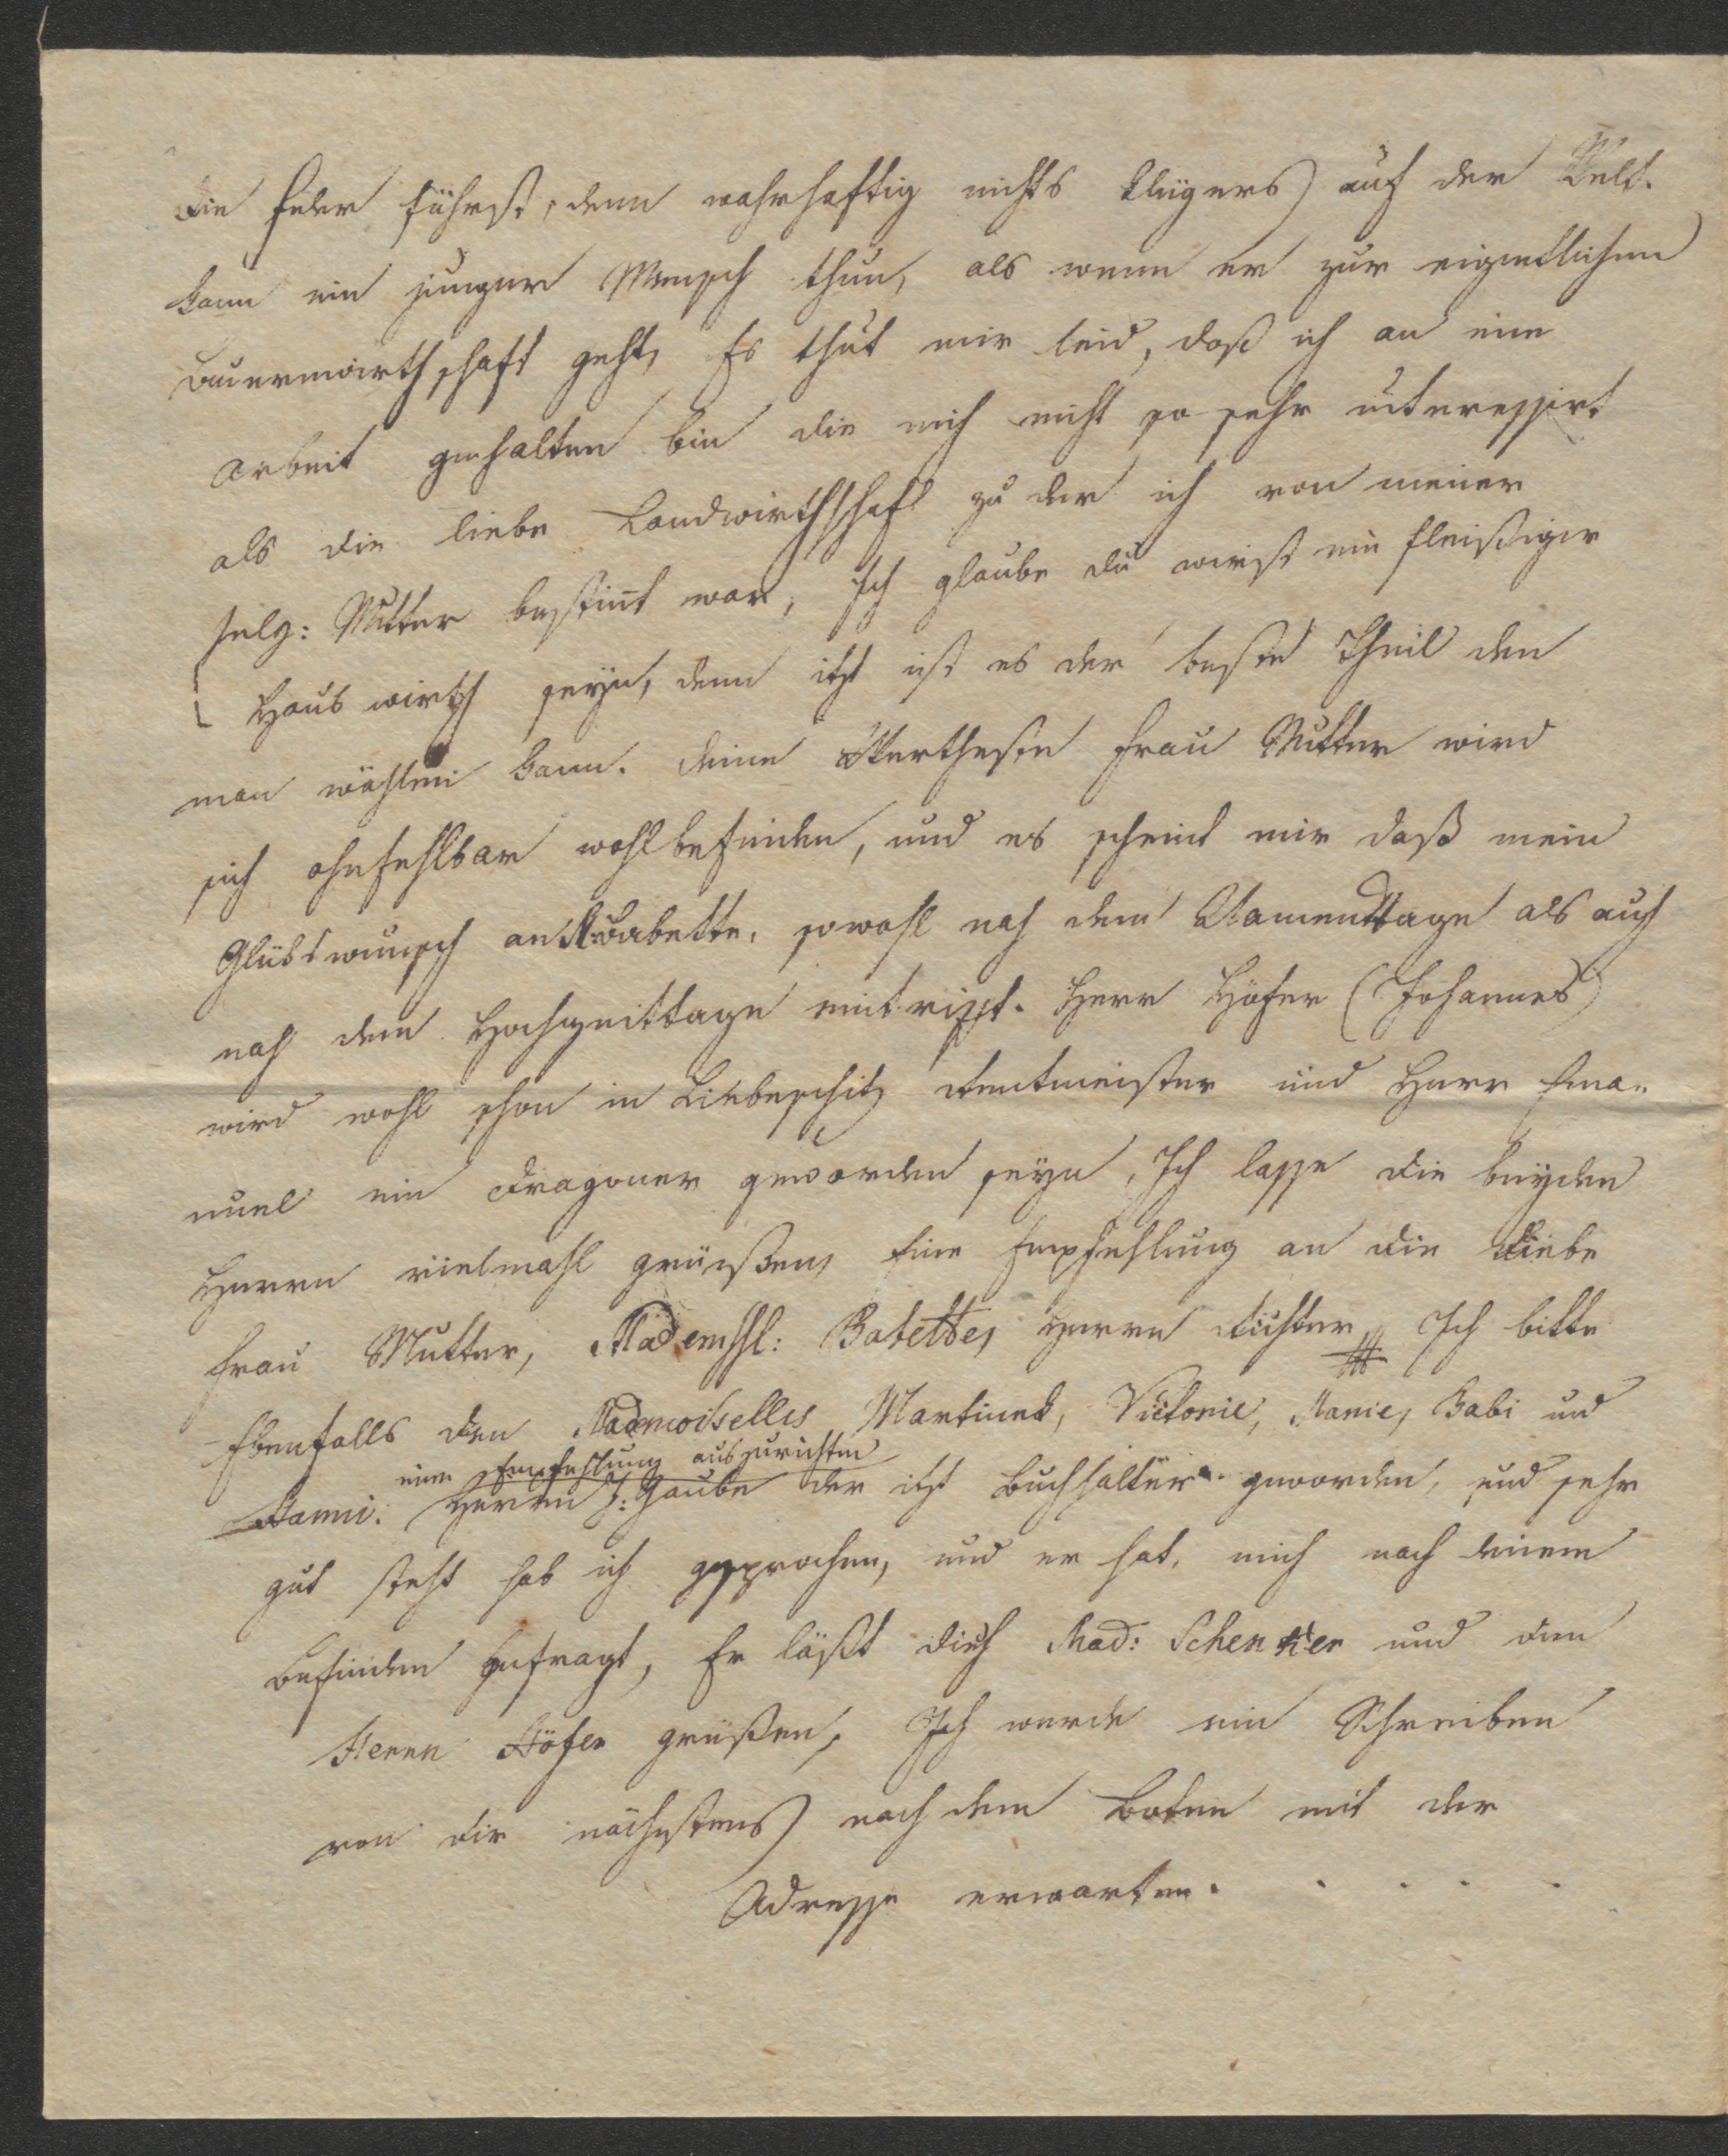 die Feder führst, denn wahrhaftig nichts klügers auf der Welt.
kann ein junger Mensch thun, als wenn er zur eigentlichen
Bauernwirthschaft geht, Es thut mir leid, daß ich an eine
Arbeit gehalten bin die mich nicht so sehr interessirt
als die liebe Landwirthschaft zu der ich von meiner
selg: Mutter bestimt war, Ich glaube du wirst ein fleißiger
Hauswirth seyn, denn itzt ist es der beste Theil den
man wählen kann. Deine Wertheste Frau Mutter wird
sich ohnfehlbar wohlbefinden, und es scheint mir daß mein
Glükswunsch an Babette, sowohl nach dem Namenstage als auch
nach dem Hochzeittage eintrifft. Herr Höfer (Johannes)
wird wohl schon in Liebeschitz Rentmeister und Herr Ema=
nuel ein Dragoner geworden seyn, Ich lasse die beyden
Herrn vielmahl grüßen, Eine Empfehlung an die Liebe
Frau Mutter, Mademssl: Babette, Herrn Richter, Ich bitte
Ebenfalls den Mademoiselles Martinek, Victorie, Marie, Babi und
eine Empfehlung auszurichten
Nanni. Herrn J: Gaube der itzt Buchhalter geworden, und sehr
gut steht hab ich gesprochen, und er hat, mich nach deinem
Befinden gefragt, Er läßt dich Mad: Schenker und den
Herrn Höfer grüßen, Ich werde ein Schreiben
von dir nächstens nach dem Boten mit der
Adresse erwarten. . . . .